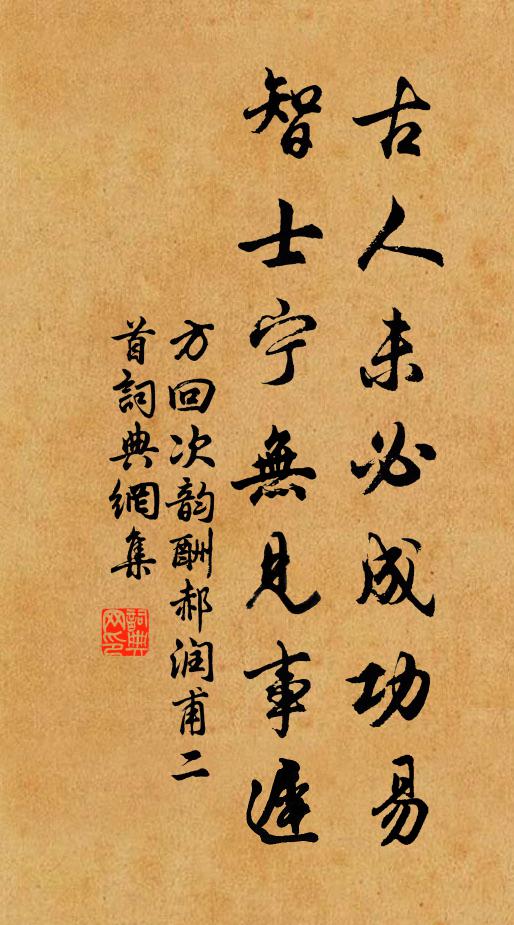 古人未必成功易
智士宁無見事遲
方回次韵酬郝润甫二
首詞典網集
詞典网印